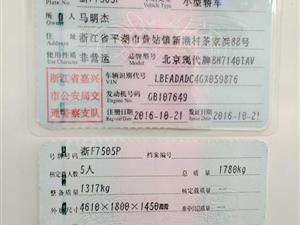 Plate No. 浙F7505P Vehicle Type 小型轿车
所有人 马明杰
住址 浙江省平湖市黄姑镇新潮村茶家浜88号
使用性质 非营运 品牌型号 北京现代牌BH7140TAV
浙江省嘉兴市公安局交通警察支队
车辆识别代号 LBEADADC4GX059876
发动机号码 GB107649
注册日期 2016-10-21 发证日期 2016-10-21
号牌号码 浙F7505P 档案编号
核定载人数 5人 总质量 1780kg
整备质量 1317kg 核定载质量 --
外廓尺寸 4610×1800×1450mm 准牵引总质量 --